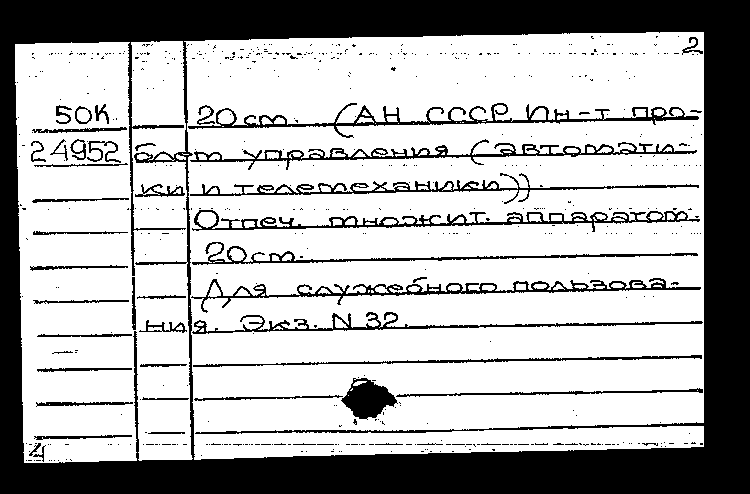 2
50К 20 см. (АН СССР. Ин-т про-
24952 блем управления (автомати-
ки и телемеханики)).
Отпеч. множит. аппаратом.
20 см.
Для служебного пользова-
ния. Экз. N 32.
4